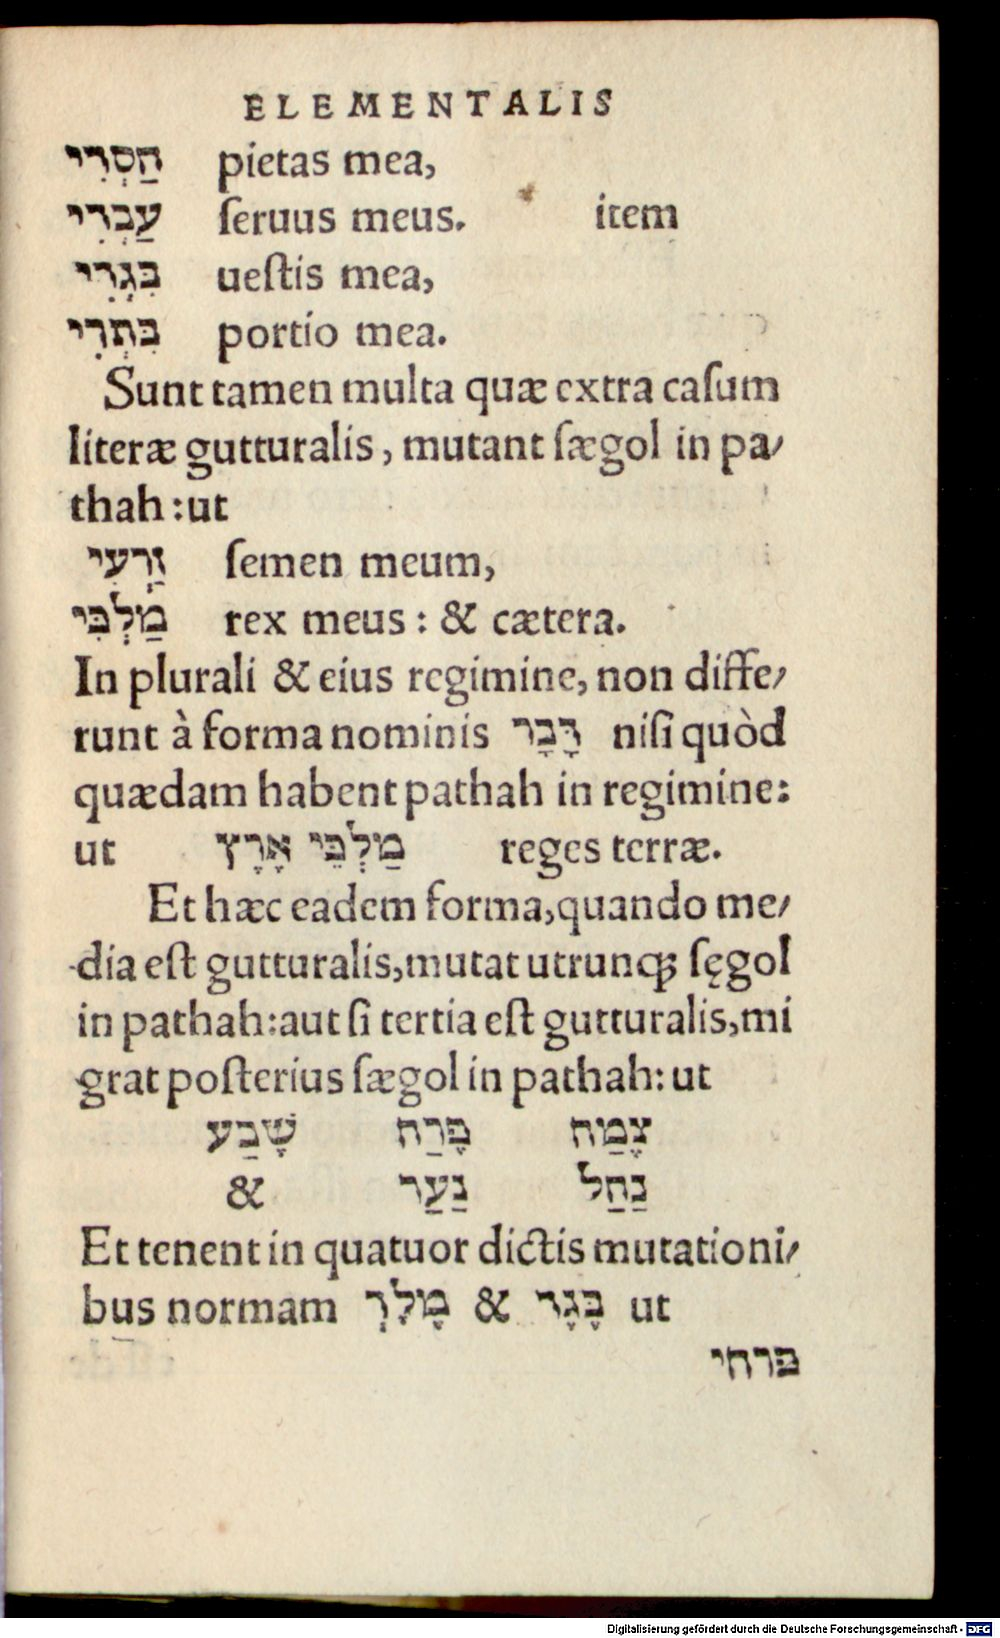 ELEMENTALIS
חַסְדִי pietas mea,
עַבְדִי ſeruus meus. item
בִּגְדִי ueſtis mea,
בִּתְרִי portio mea.
Sunt tamen multa quæ extra caſum
literæ gutturalis, mutant ſægol in pa/
thah: ut
זַרְעִי ſemen meum,
מַלְכִּי rex meus: & cætera.
In plurali & eius regimine, non diffe/
runt à forma nominis דָּבָר niſi quòd
quædam habent pathah in regimine:
ut מַלְכֵּי אָרָץ reges terræ.
Et hæc eadem forma, quando me/
dia eſt gutturalis, mutat utrunqꝫ ſęgol
in pathah: aut ſi tertia eſt gutturalis, mi
grat poſterius ſægol in pathah: ut
צֶמַח פֶּרַח שֶׁבַע
נַחַל נַעַר &
Et tenent in quatuor dictis mutationi/
bus normam מֶלֶךְ & בֶּגֶד ut
פרחי
Digitalisierung gefördert durch die Deutsche Forschungsgemeinschaft - DFG